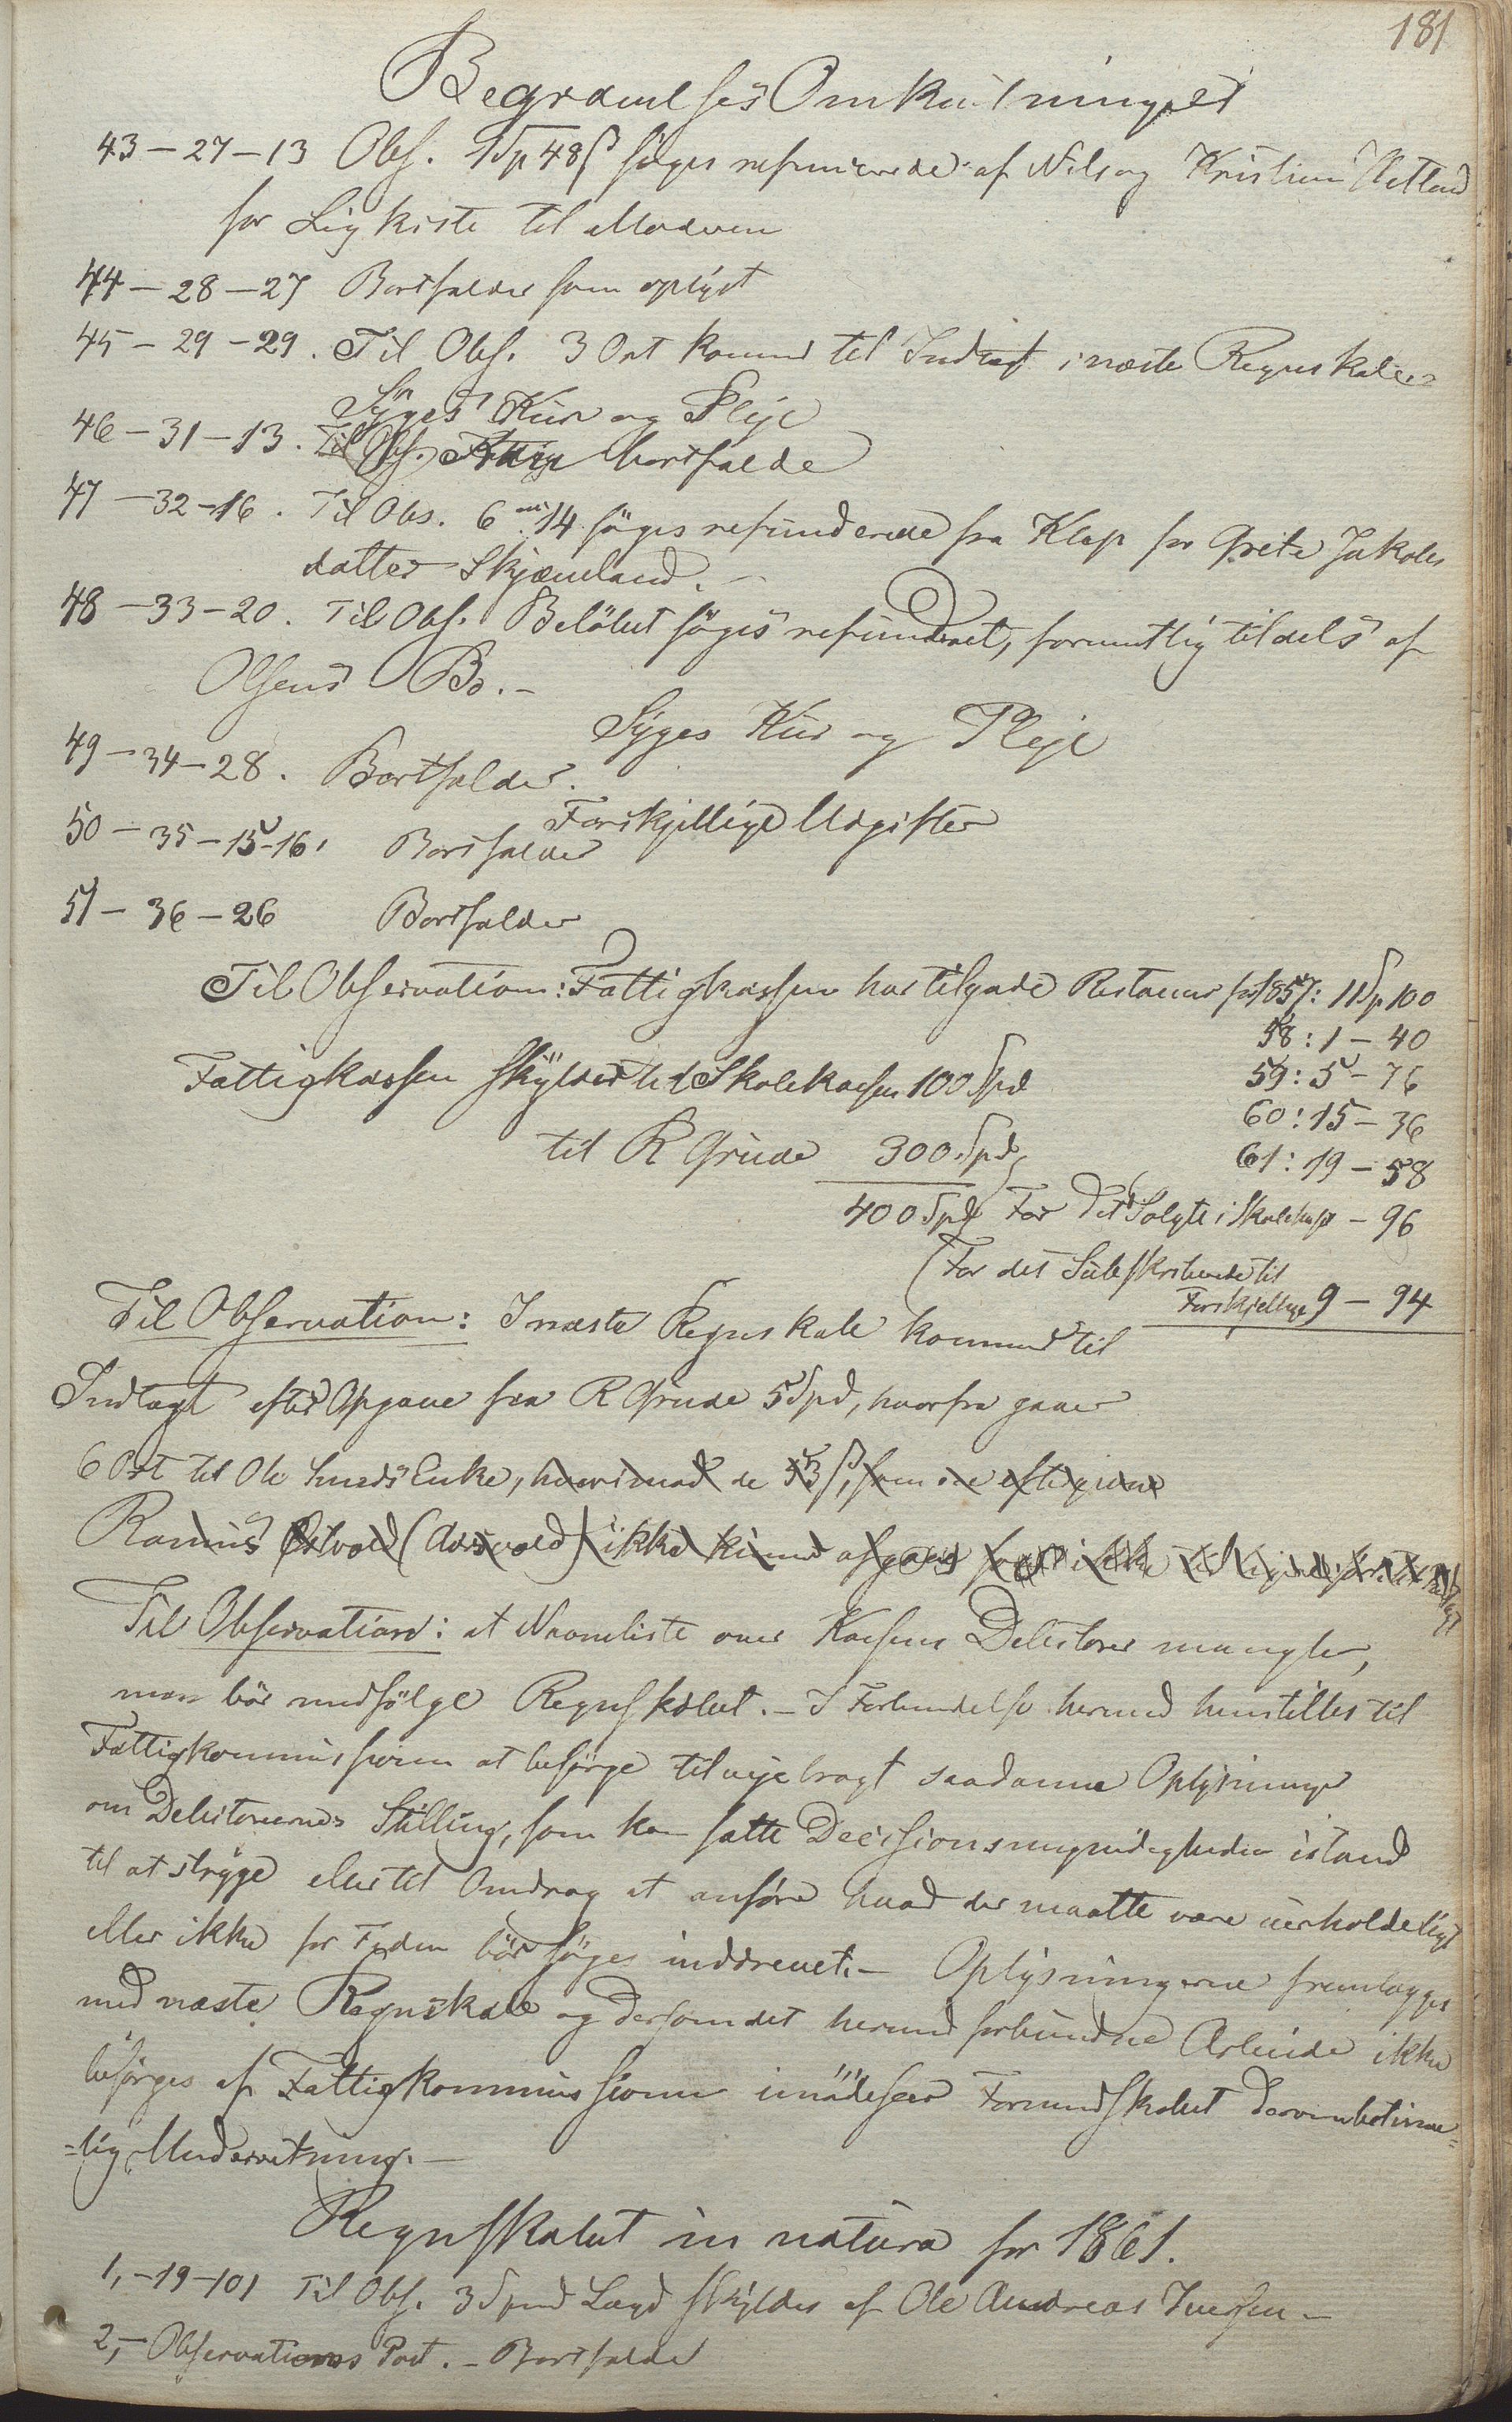 181
Begravelses Omkostninger
43-27-13 Obs. 1 Sp 48 ß søges refunderede af Nils og Kristian Hetland
for Ligkiste til Moderen
44-28-27 Bortfalder som oplyst
45-29-29. Til Obs. 3 Ort kommer til Indtægt i næste Regnskab
Syges Kur og Pleje
46-31-13. Til Obs. bortfalder
47-32-16. Til Obs. 6 14 søges refunderede fra Klep for Grete Jakobs
datter Skjæveland.
48-33-20. Til Obs. Beløbet søges refunderet, formentlig tildels af
Olsens Bo.-
Syges Kur og Pleje
49-34-28. Bortfalder.
Forskjellige Udgifter
50-35-15-16, Bortfalder
51-36-26 Bortfalder
Til Observation: Fattigkassen har tilgode Restancer for 1857: 11 Sp 100
58: 1 - 40
Fattigkassen skylder til Skolekassen 100 Spd
59: 5 - 76
60: 15 - 36
til R Grude 300 Spd
61: 19 - 58
400 Spd For det Solgte i Skolehuset - 96
For det Subskriberede til
Forskjellige 9 - 94
Til Observation: I næste Regnskab kommer til
Indtægt efter Opgave fra R Grude 5 Spd, hvorfra gaaer
6 Ort til Ole Enke, hvorimod de 53 ß, som ere eftergivne
Rasmus Østvold (Austvold) ikke kunne afgaae ikke til
Til Observation: at Navneliste over Kassens Debitorer mangler,
men bør medfølge Regnskabet.- I Forbindelse hermed henstilles til
Fattigkommissionen at besørge tilvejebragt saadanne Oplysninger
om Debitorernes Stilling, som kan sætte Decisionsmyndigheden istand
til at stryge eller til Omdrag at anføre hvad der maatte være uerholdeligt
eller ikke for Tiden bør søges inddrevet.- Oplysningerne fremlægges
med næste Regnskab og dersom det hermed forbundne Arbeide ikke
besørges af Fattigkommissionen imødeseer Formandskabet derom betime=
=lig Underretning.-
Regnskabet in natura for 1861.
1,-19-101 Til Obs. 3 Spnd Lægd skyldes af Ole Andreas Iversen -
2,- Observations Post.- Bortfalder